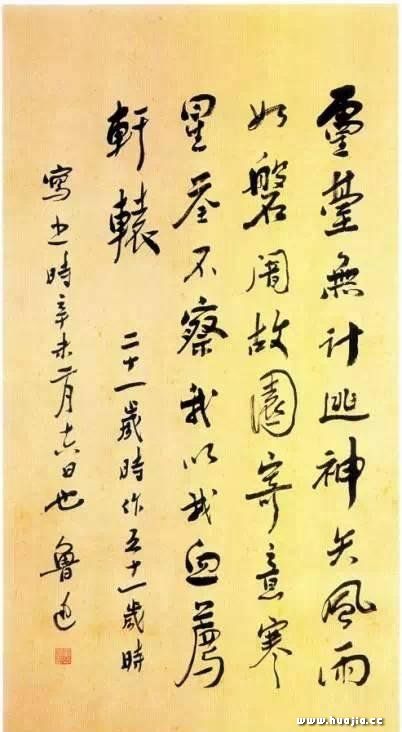 靈臺無計逃神矢風雨
如磐闇故園寄意寒
星荃不察我以我血薦
軒轅 二十一歲時作五十一歲時
寫之時辛未二月十六日也 魯迅
www.huajia.cc